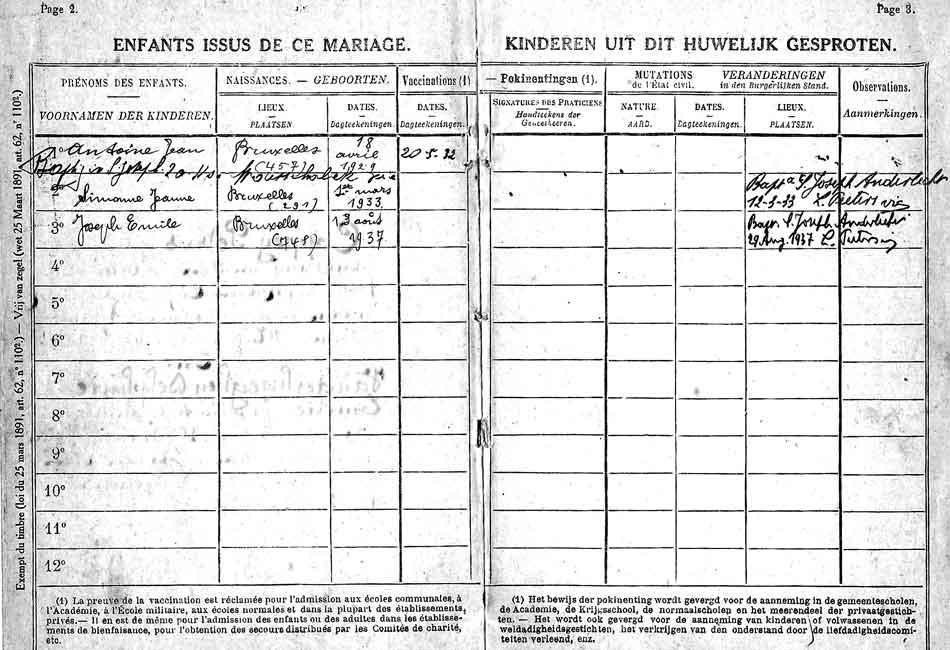 Page 2.
Page 3.
ENFANTS ISSUS DE CE MARIAGE.
KINDEREN UIT DIT HUWELIJK GESPROTEN.
PRÉNOMS DES ENFANTS.
VOORNAMEN DER KINDEREN.
NAISSANCES. — GEBOORTEN.
LIEUX.
PLAATSEN.
DATES.
Dagteekeningen.
Vaccinations (1)
DATES.
Dagteekeningen.
— Pokinentingen (1).
SIGNATURES DES PRATICIENS
Handteekens der
Geneesheeren.
MUTATIONS
de l'État civil.
VERANDERINGEN
in den Burgerlijken Stand.
NATURE.
AARD.
DATES.
Dagteekeningen.
LIEUX.
PLAATSEN.
Observations.
Aanmerkingen.
1º Antoine Jean
Bruxelles
(457)
18
avril
1929
20-5-32
Bapt. S Joseph
2º Simonne Jeanne
Bruxelles
(291)
1er mars
1933
Bapt. S. Joseph Anderlecht
12-3-33 L. Pieters
3º Joseph Emile
Bruxelles
(748)
13 août
1937
Bapt. S. Joseph Anderlecht
29 Aug. 1937
4º
5º
6º
7º
8º
9º
10º
11º
12º
(1) La preuve de la vaccination est réclamée pour l'admission aux écoles communales, à
l'Académie, à l'École militaire, aux écoles normales et dans la plupart des établissements
privés.— Il en est de même pour l'admission des enfants ou des adultes dans les établisse-
ments de bienfaisance, pour l'obtention des secours distribués par les Comités de charité,
etc.
(1) Het bewijs der pokinenting wordt gevergd voor de aanneming in de gemeentescholen,
de Academie, de Krijksschool, de normaalscholen en het meerendeel der privaatgestich-
ten. — Het wordt ook gevergd voor de aanneming van kinderen of volwassenen in de
weldadigheidsgestichten, het verkrijgen van den onderstand door de liefdadigheidscomi-
teiten verleend, enz.
Exempt du timbre (loi du 25 mars 1891, art. 62, nº 110º.) — Vrij van zegel (wet 25 Maart 1891, art. 62, nº 110º.)